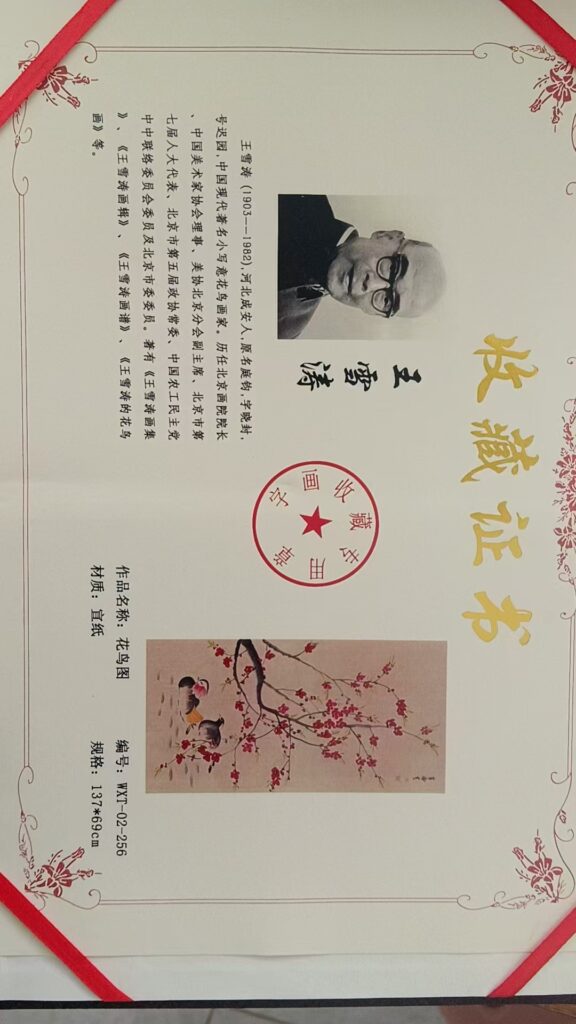 收藏证书
王雪涛
王雪涛(1903--1982),河北成安人,原名庭钧,字晓封,
号迟园,中国现代著名小写意花鸟画家。历任北京画院院长
、中国美术家协会理事、美协北京分会副主席、北京市第
七届人大代表、北京市第五届政协常委、中国农工民主党
中中联络委员会委员及北京市委委员。著有《王雪涛画集
》、《王雪涛画辑》、《王雪涛画谱》、《王雪涛的花鸟
画》等。
字画收藏专用章
作品名称:花鸟图 编号:WXT-02-256
材质:宣纸 规格:137*69cm